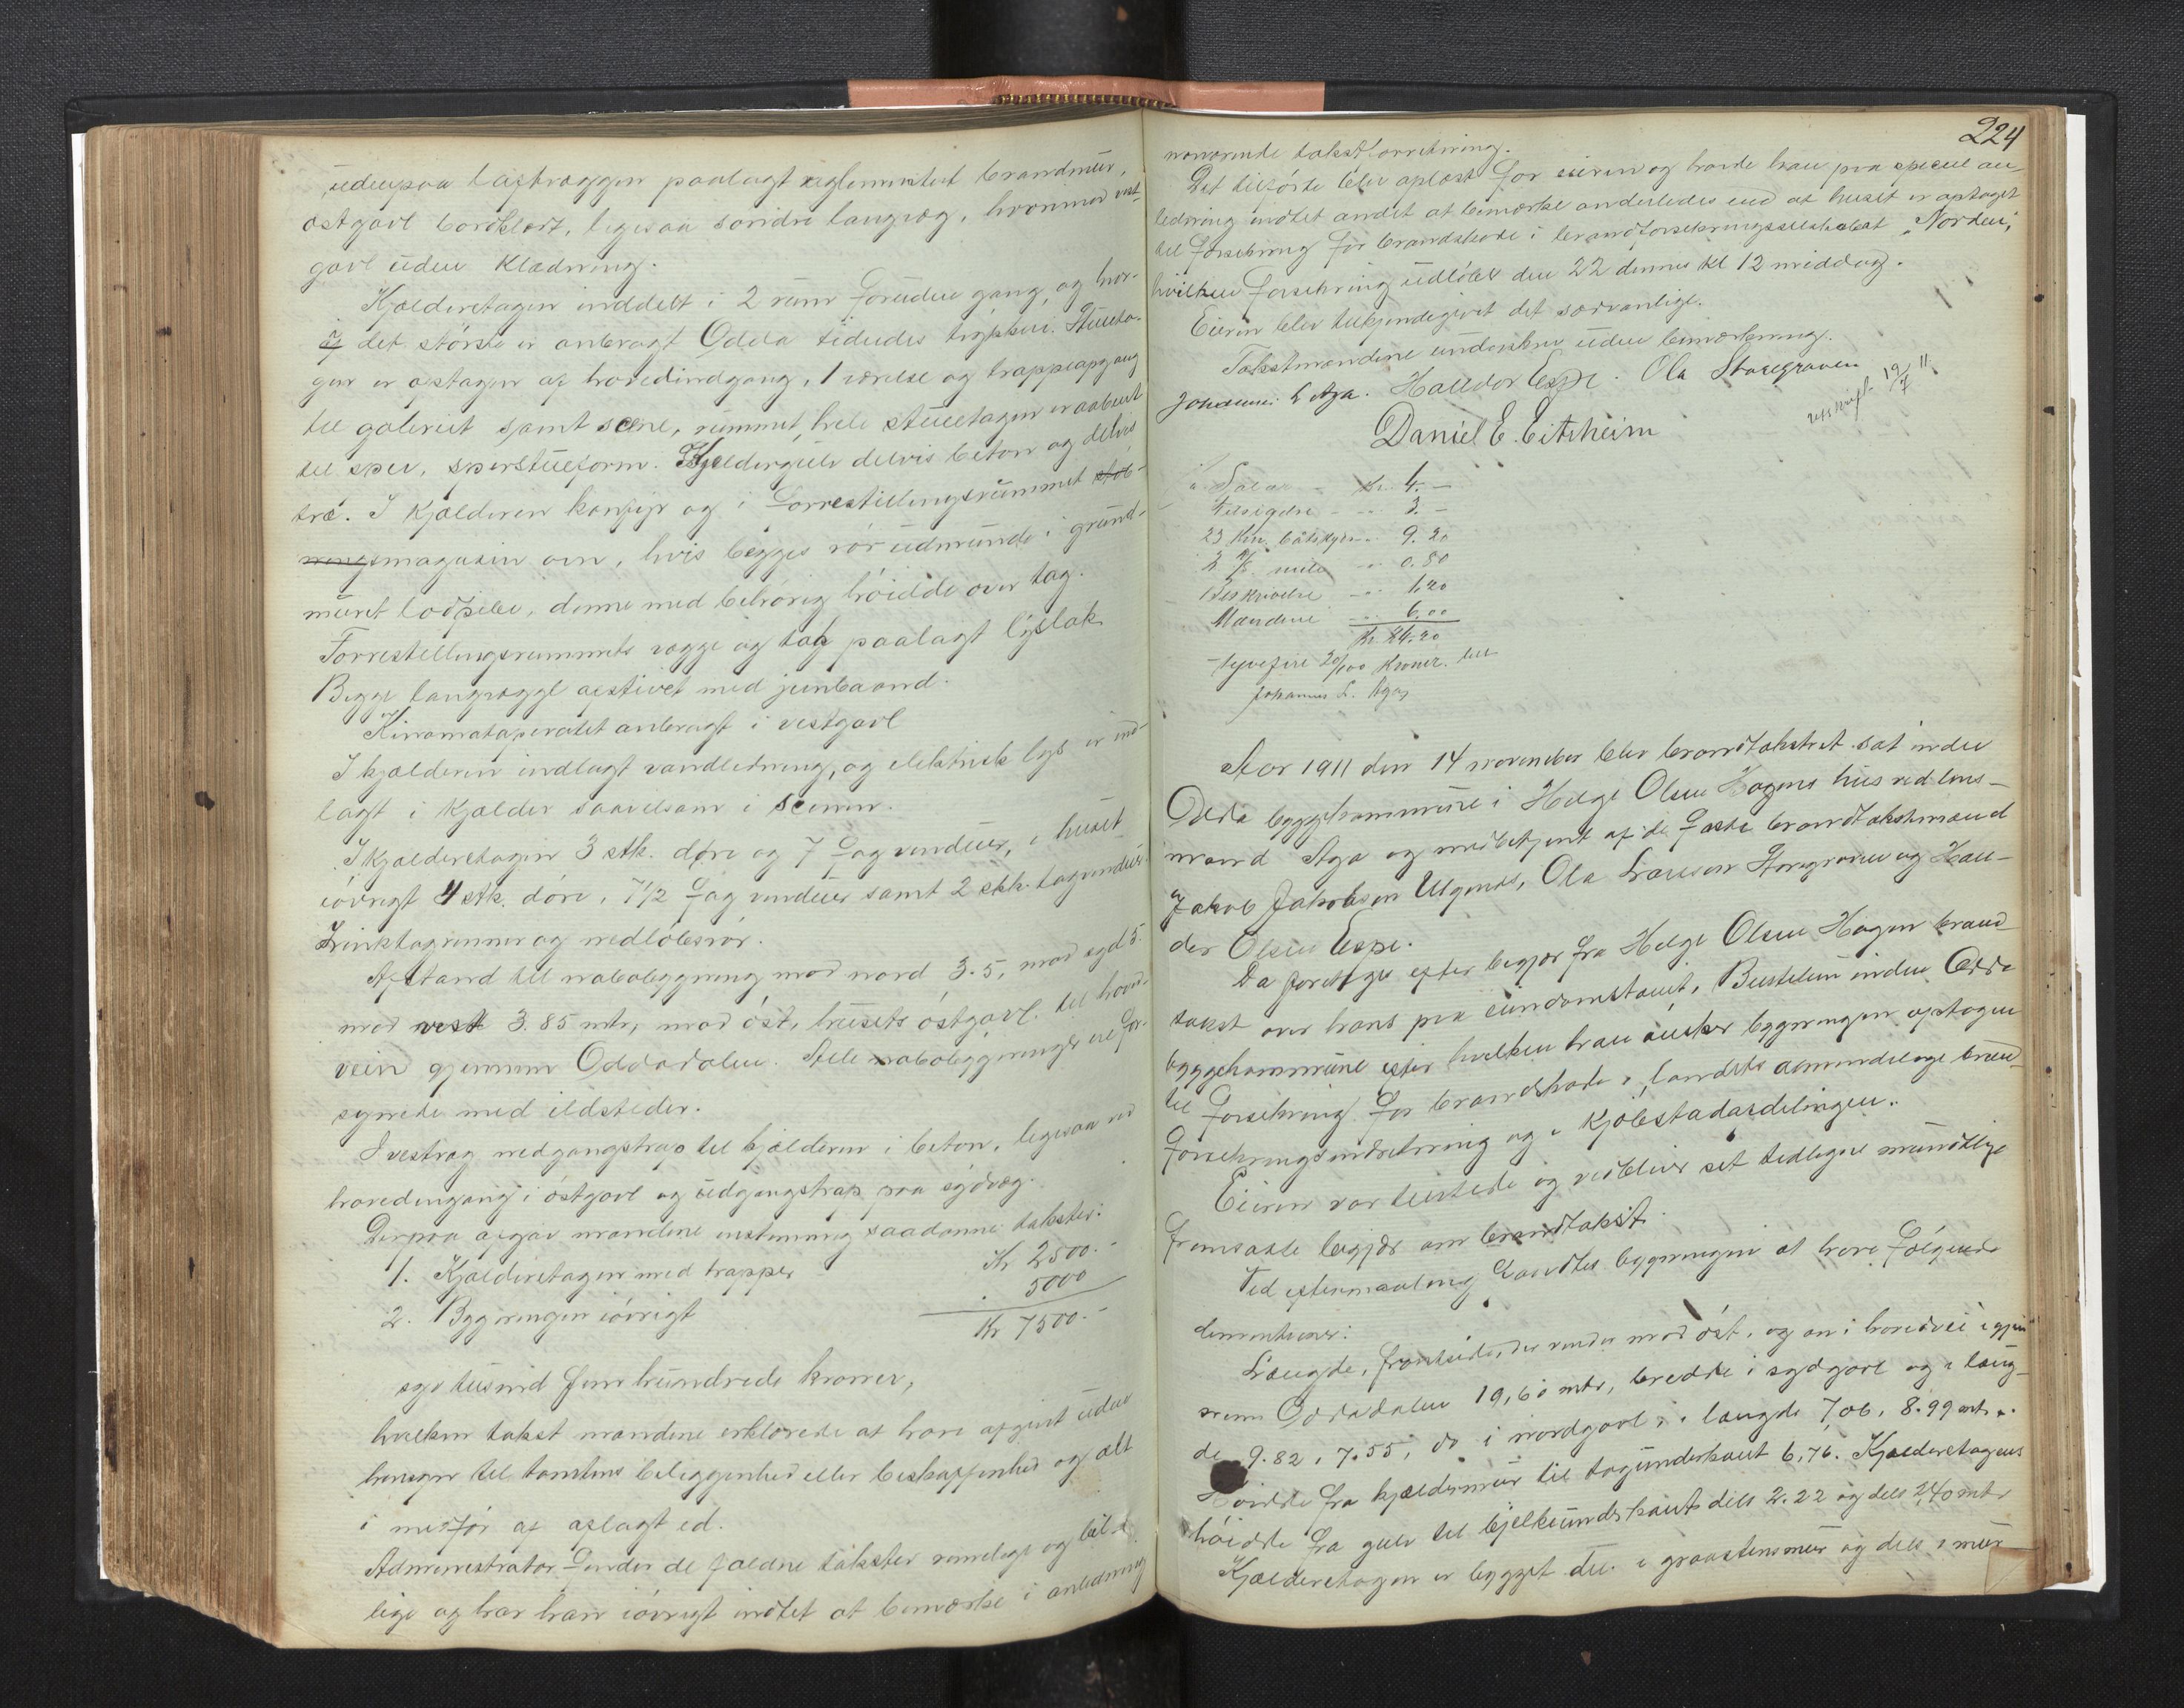 udenpaa taftvæggen paalagt reglementert brandmur,
østgavl bordklædt, ligesaa søndre langvæg, hvorimod vest-
gavl uden klædning.
Kjælderetagen inddelt i 2 rum foruden gang, og hvor-
af det største er anbragt Odda tidendes trykkeri. Stueeta-
gen er optagen af hovedindgang, 1 værelse og trappeopgang
til galeriet samt scene, rummet, hele stueetagen er aabent
til sper, sperstueform. Kjeldergulv delvis beton og delvis
træ. I kjælderen komfyr og i Forrestillingsrummet støb-
ningsmagasin ovn, hvis begges rør udmunde i grund-
muret lodpibe, denne med behørig høidde over tag.
Forrestillingsrummets vægge og tag paalagt lyslak
Begge langvægge afstivet med jernbaand.
Kinomataperatet anbragt i vestgavl
I kjælderen indlagt vandledning, og elektrisk lys er ind-
lagt i kjælder saavelsom i scenen.
I kjælderetagen 3 stk. døre og 7 fag vinduer, i huset
iøvrigt 4 stk. døre, 7 1/2 fag vinduer samt 2 stk. tagvinduer.
Zinktagrenner og nedløbsrør.
Afstand til nabobygning mod nord 3.5, mod syd 5.
mod vest 3.85 mtr, mod øst, husets østgavl, til hoved-
vein gjennem Oddadalen. Alle nabobygninger ere for-
synede med ildsteder.
I vestvæg nedgangstrap til kjælderen i beton, ligesaa ved
hovedingang i østgavl og udgangstrap paa sydvæg.
Derpaa afgav mændene enstemmig saadanne takster:
1. Kjælderetagen med trapper Kr 2500.-
2. Bygningen iøvrigt " 5000
Kr 7500.-
syv tusind fem hundrede kroner,
hvilken takst mændene erklærede at have afgivet uden
hensyn til tomtens beliggenhed eller beskaffenhed og alt
i medfør af aflagt ed.
Administrator fandt de faldne takster rimelige og bil-
lige og har han iøvrigt indtet at bemærke i anledning
224
nærværende takstforretning.
Det tilførte blev oplæst for eieren og havde han paa speciel an-
ledning indtet andet at bemærke anderledes end at huset er optaget
til forsikring for brandskade i brandforsikringsselskabet "Norden",
hvilken forsikring udløber den 22 dennes kl 12 middag.
Eieren blev tilkjendegivet det sædvanlige.
Takstmændene underskrev uden bemærkning.
Johannes L Aga. Halldor Espe. Ola Storegraven
Daniel E. Eitrheim
utskrift 19/7 11
Salær - Kr. 4.-
Tilsigelse - " 3.-
23 Km. båtskyds " 9.20
2 1/5 mile - " 0.80
Beskrivelse - " 1.20
Mændene " 6.00
Kr. 24.20
tyvefire 20/100 Kroner.
Johannes L. Aga
Aar 1911 den 14 november blev brandtakstret sat inden
Odda byggekommune i Helge Olsen Hagens hus ved lens-
mand Aga og medbetjent af de faste brandtakstmænd
Jakob Jakobsen Ulgenes, Ola Larsson Storegraven og Hall-
dor Olsen Espe.
Da foretoges efter begjær fra Helge Olsen Hagen brand-
takst over hans paa eiendomstomt, Bustetun inden Odda
byggekommune efter hvilken han ønsker bygningen optagen
til forsikring for brandskade i landets almindelige brand-
forsikringsindretning og i kjøbstadafdelingen.
Eieren var tilstede og vedblev sit tidligere mundtlige
fremsatte begjær om brandtakst.
Ved eftermaaling fandtes bygningen at have følgende
dimentioner:
Længde, frontside, der vender mod øst, og er i hovedvei igjen-
nem Oddadalen 19,60 mtr, bredde i sydgavl og i læng-
de 9.82, 7.55, do i nordgavl, i længde 7.06, 8.99 mtr.
Høidde fra kjældermur til tagunderkant 6,76. Kjælderetagens
høidde fra gulv til bjelkeunderkant dels 2.22 og dels 2.40 mtr
Kjælderetagen er bygget del. i graastensmur og dels i mur